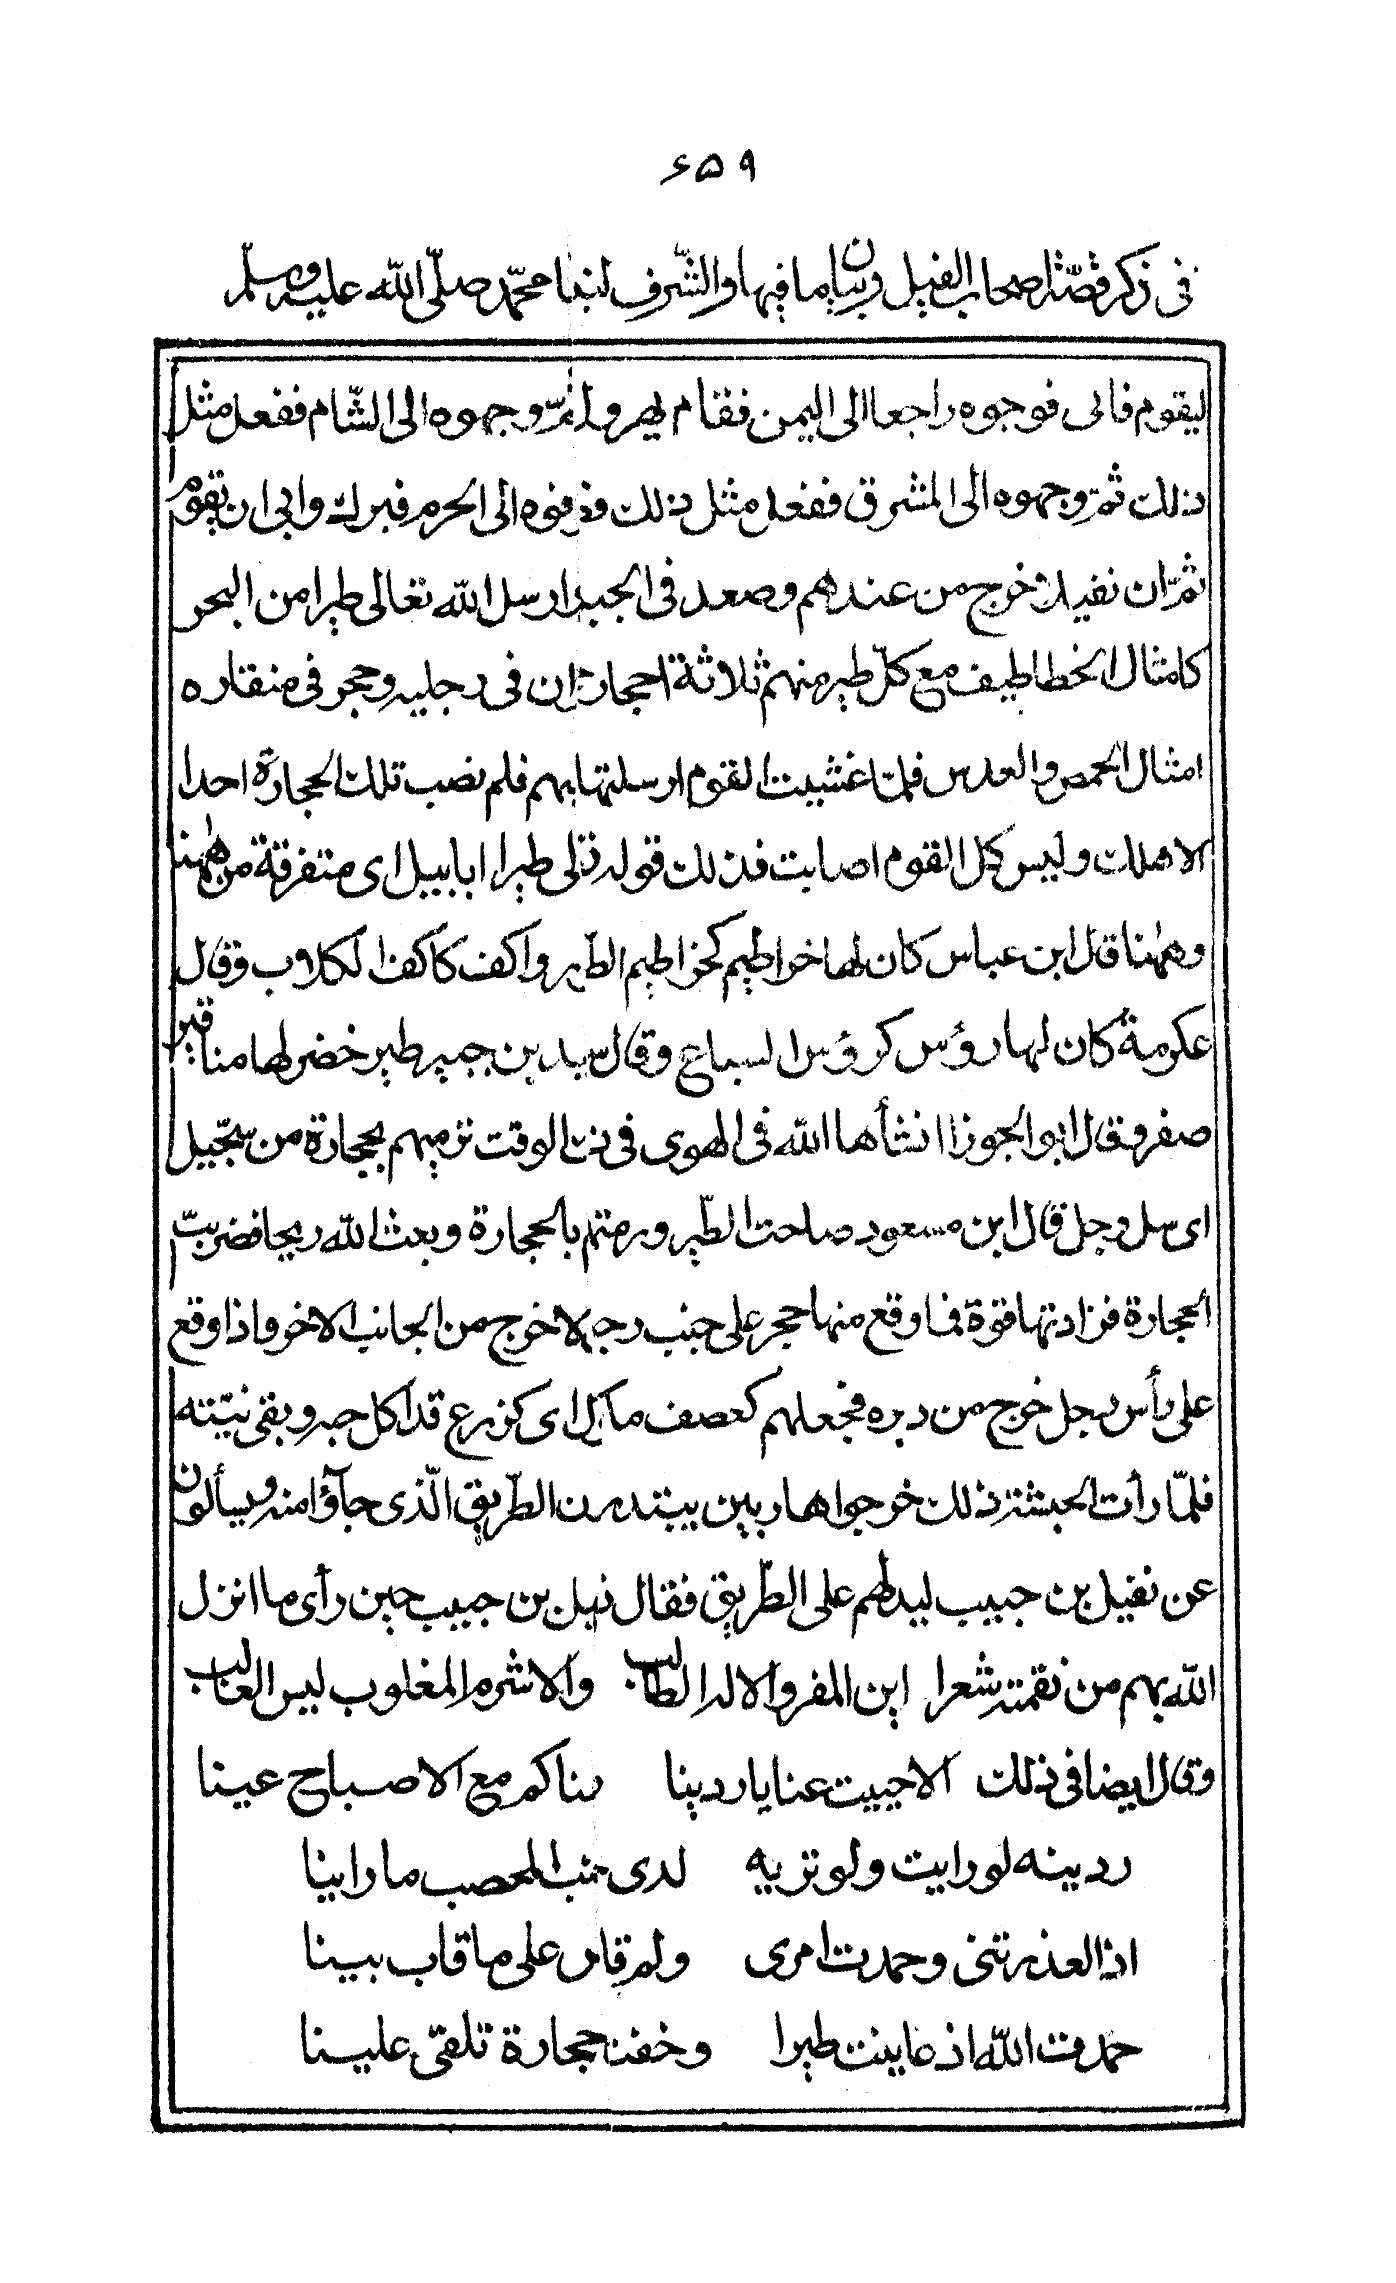 ۶۵۹
فی ذکر قصّة اصحاب الفیل وبیان ما فیها والشّرف لنبینا محمّد صلّی الله علیه وسلّم
لیقوم فابی فوجوه راجعا الی الیمن فقام یهرول ثمّ وجهوه الی الشّام ففعل مثل
ذلك ثمّ وجهوه الی المشرق ففعل مثل ذلك فصرفوه الی الحرم فبرك وابی ان یقوم
ثمّ ان نفیلا خرج من عندهم وصعد فی الجبل ارسل الله تعالی طیرا من البحر
کامثال الخطاطیف مع کلّ طیر منهم ثلاثة احجار حجران فی رجلیه وحجر فی منقاره
امثال الحمص والعدس فلمّا غشیت القوم ارسلتها بهم فلم تصب تلك الحجارة احدا
الا هلك ولیس کل القوم اصابت فذلك قوله تعالی طیرا ابابیل ای متفرقة من ههنا
وههنا قال ابن عباس کان لها خراطیم کخراطیم الطّیر واکف کاکف الکلاب وقال
عکرمة کان لها رؤس کرؤس السباع وقال سعید بن جبیر طیر خضر لها مناقیر
صفر وقال ابو الجوزا انشأها الله فی الهوی فی ذلك الوقت ترمیهم بحجارة من سجّیل
ای سل وجل قال ابن مسعود صاحت الطّیر ورمتهم بالحجارة وبعث الله ریحا فضربت
الحجارة فزادتها قوّة فما وقع منها حجر علی جنب رجل الا خرج من الجانب الاخر واذا وقع
علی رأس رجل خرج من دبره فجعلهم کعصف ماکول ای کزرع قد اکل حبه وبقی تبنه
فلمّا رأت الحبشة ذلك خرجوا هاربین یبتدرون الطّریق الّذی جآؤا منه ویسألون
عن نفیل بن حبیب لیدلهم علی الطّریق فقال نفیل بن حبیب حین رأی ما انزل
الله بهم من نقمته شعرا این المفر والاله الطالب والاشرم المغلوب لیس الغالب
وقال ایضا فی ذلك الا حییت عنا یا ردینا نعناکم مع الاصباح عینا
ردینه لو رایت ولو تریه لدی جنب المحصب ما راینا
اذا لعذرتنی وحمدت امری ولم تاس علی ما فات بینا
حمدت الله اذ عاینت طیرا وخفت حجارة تلقی علینا